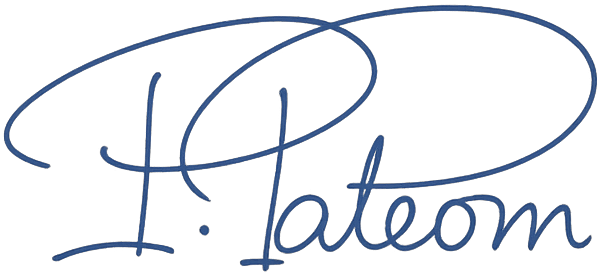 P. Pateom